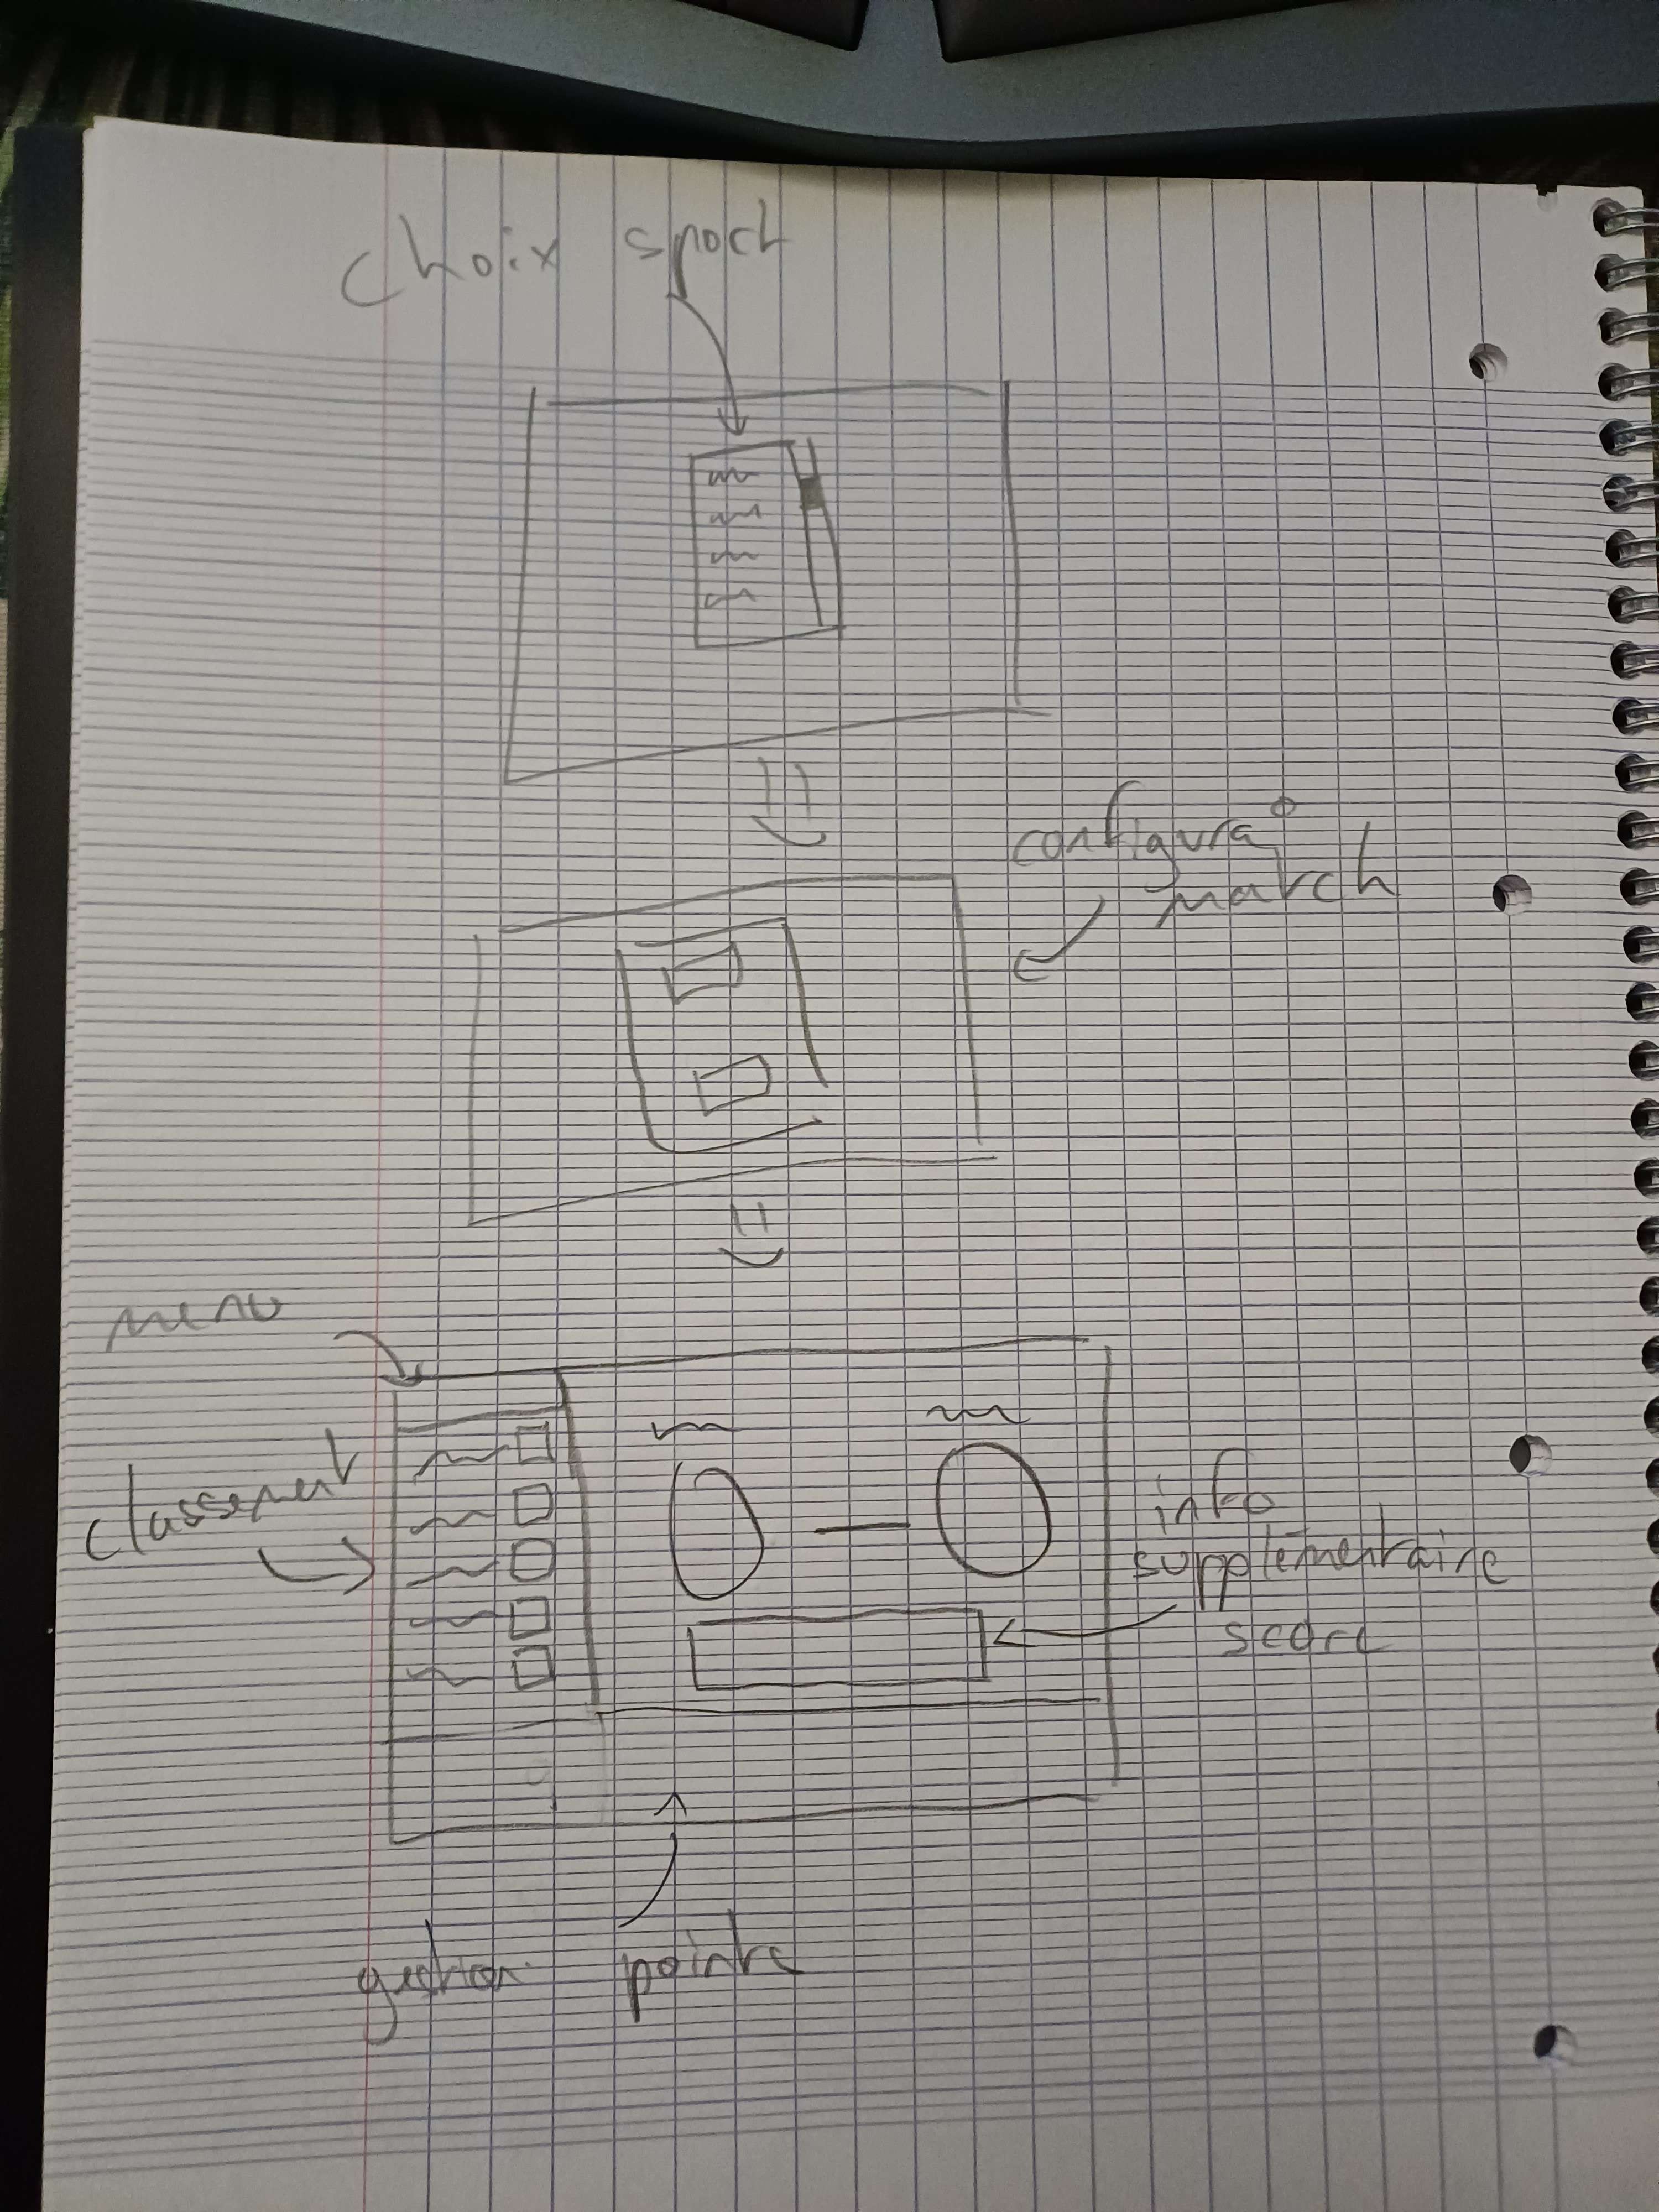 choix sport
configura°
match
menu
classement
info
supplémentaire
score
gestion points